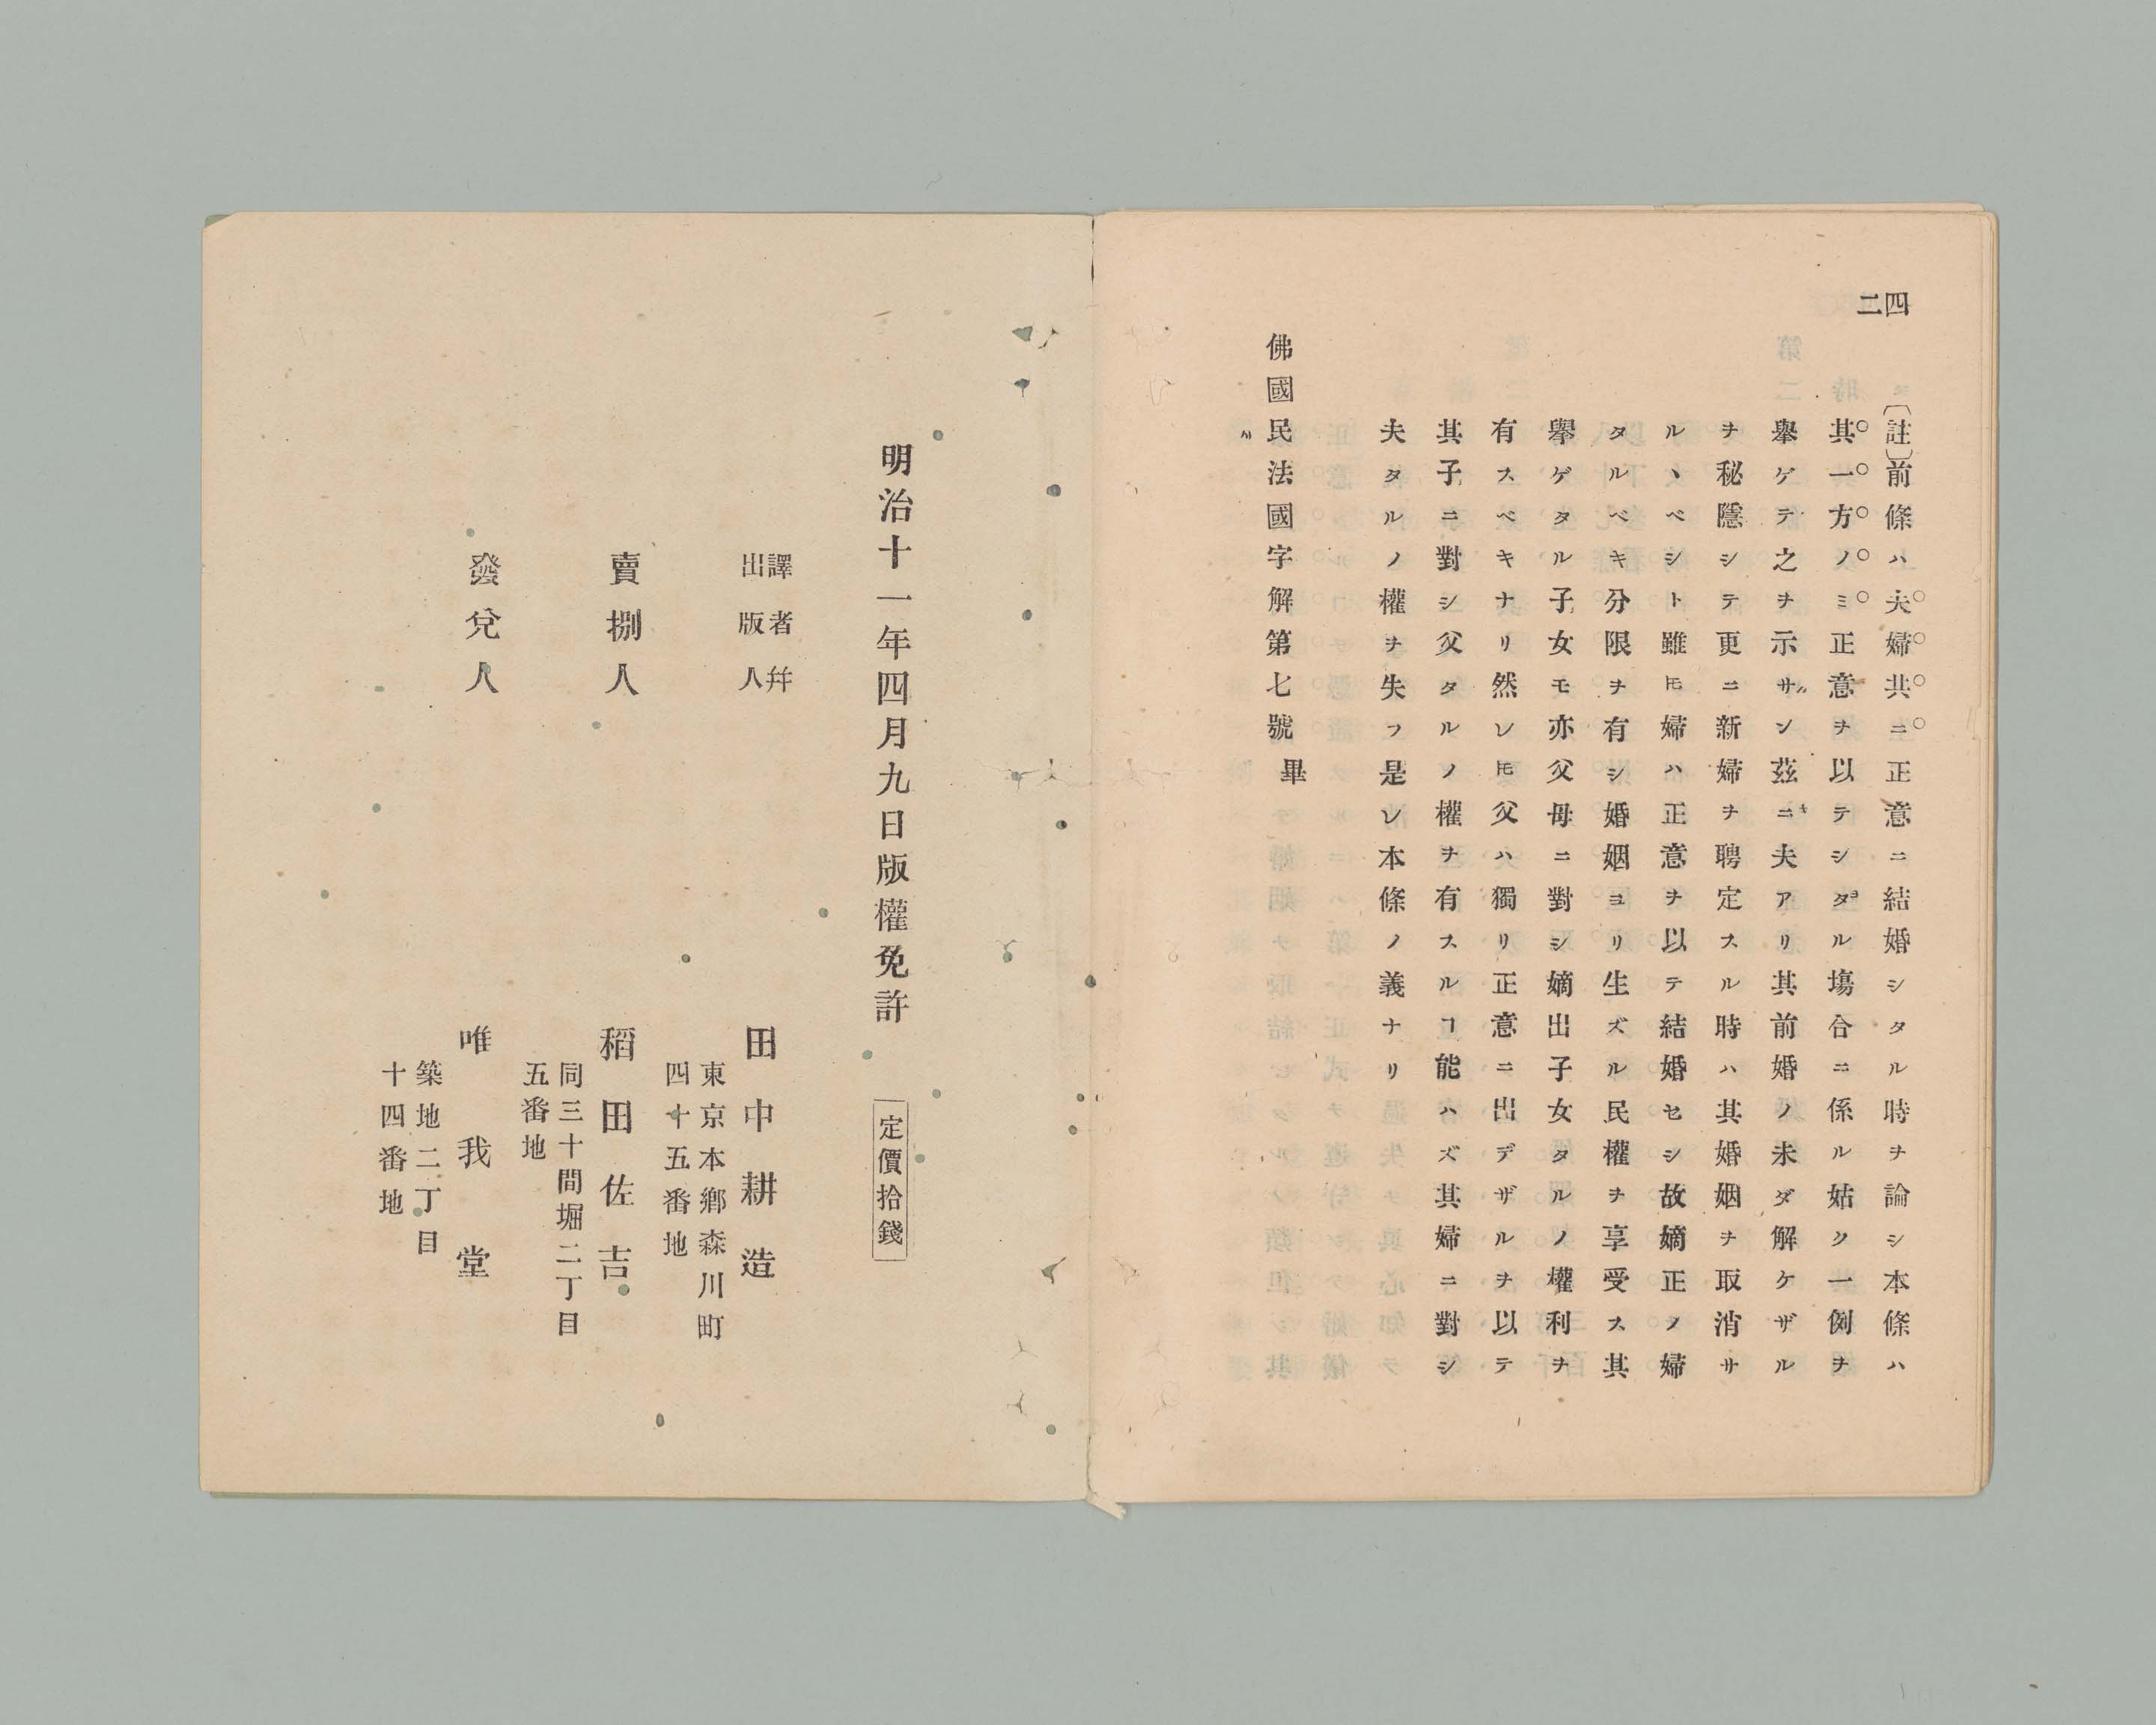 四二
〔註〕前條ハ夫婦共ニ正意ニ結婚シタル時ヲ論シ本條ハ
其一方ノミ正意ヲ以テシタル塲合ニ係ル姑ク一例ヲ
擧ゲテ之ヲ示サン茲ニ夫アリ其前婚ノ未ダ解ケザル
ヲ秘隱シテ更ニ新婦ヲ聘定スル時ハ其婚姻ヲ取消サ
ルヽベシト雖𪜈婦ハ正意ヲ以テ結婚セシ故嫡正ノ婦
タルベキ分限ヲ有シ婚姻ヨリ生ズル民權ヲ享受ス其
擧ゲタル子女モ亦父母ニ對シ嫡出子女タルノ權利ヲ
有スベキナリ然レ𪜈父ハ獨リ正意ニ出デザルヲ以テ
其子ニ對シ父タルノ權ヲ有スルヿ能ハズ其婦ニ對シ
夫タルノ權ヲ失フ是レ本條ノ義ナリ
佛國民法國字解第七號畢
明治十一年四月九日版權免許
定價拾錢
譯者幷
出版人
田中耕造
東京本鄕森川町
四十五番地
賣捌人
稻田佐吉
同三十間堀二丁目
五番地
發兌人
唯我堂
築地二丁目
十四番地